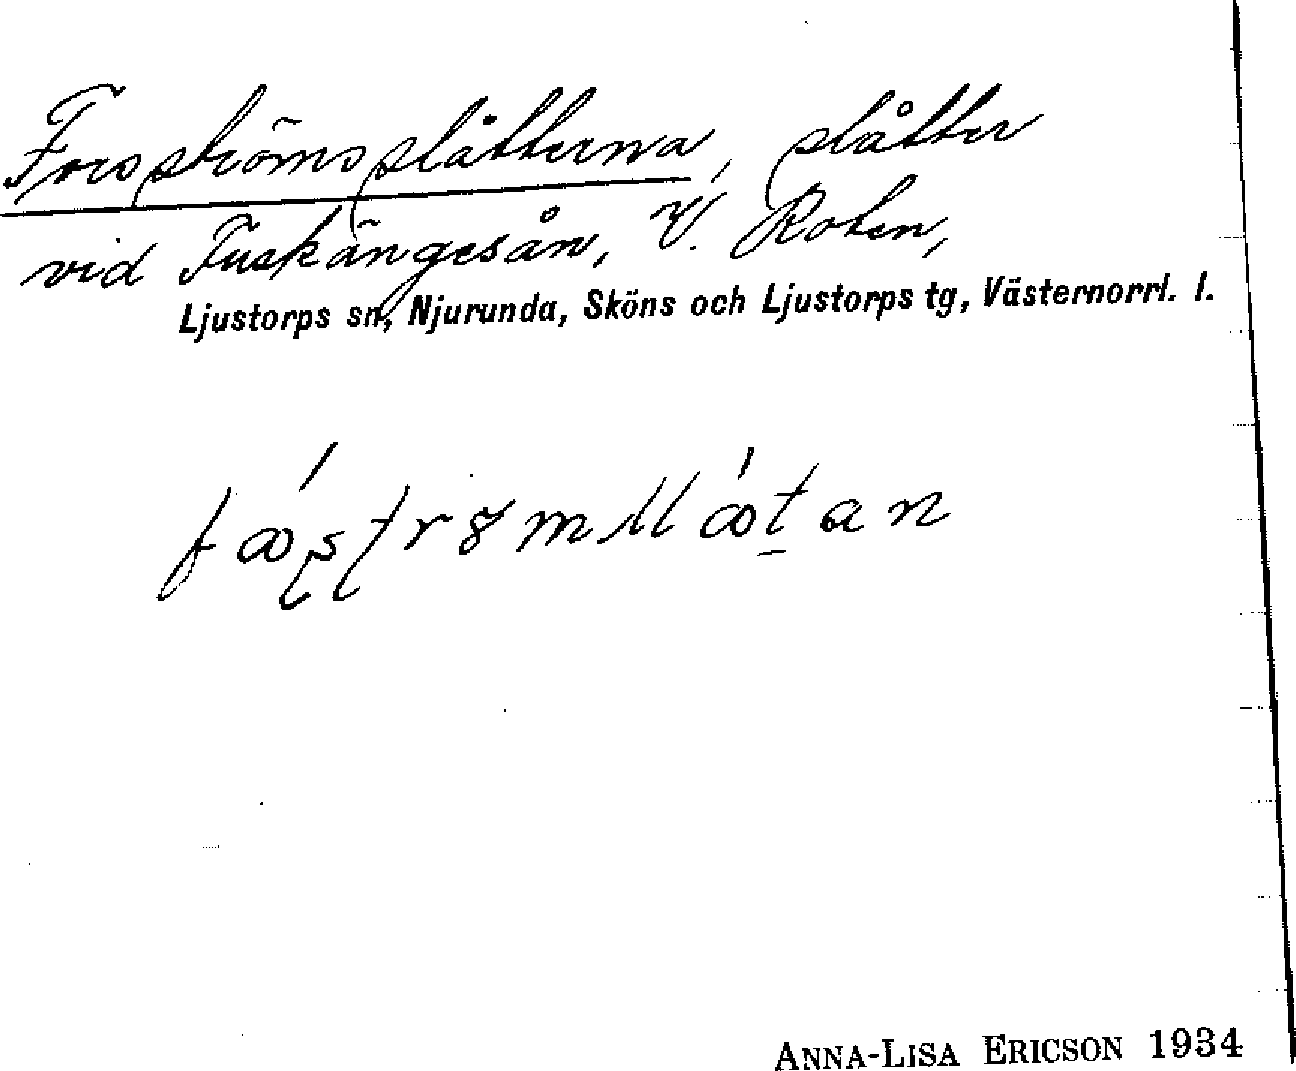 Forsströmsslåtterna, slåtter
vid Fuskängesån, V. Roten,
Ljustorps sn, Njurunda, Sköns och Ljustorps tg, Västernorrl. l.
ANNA-LISA ERICSON 1934